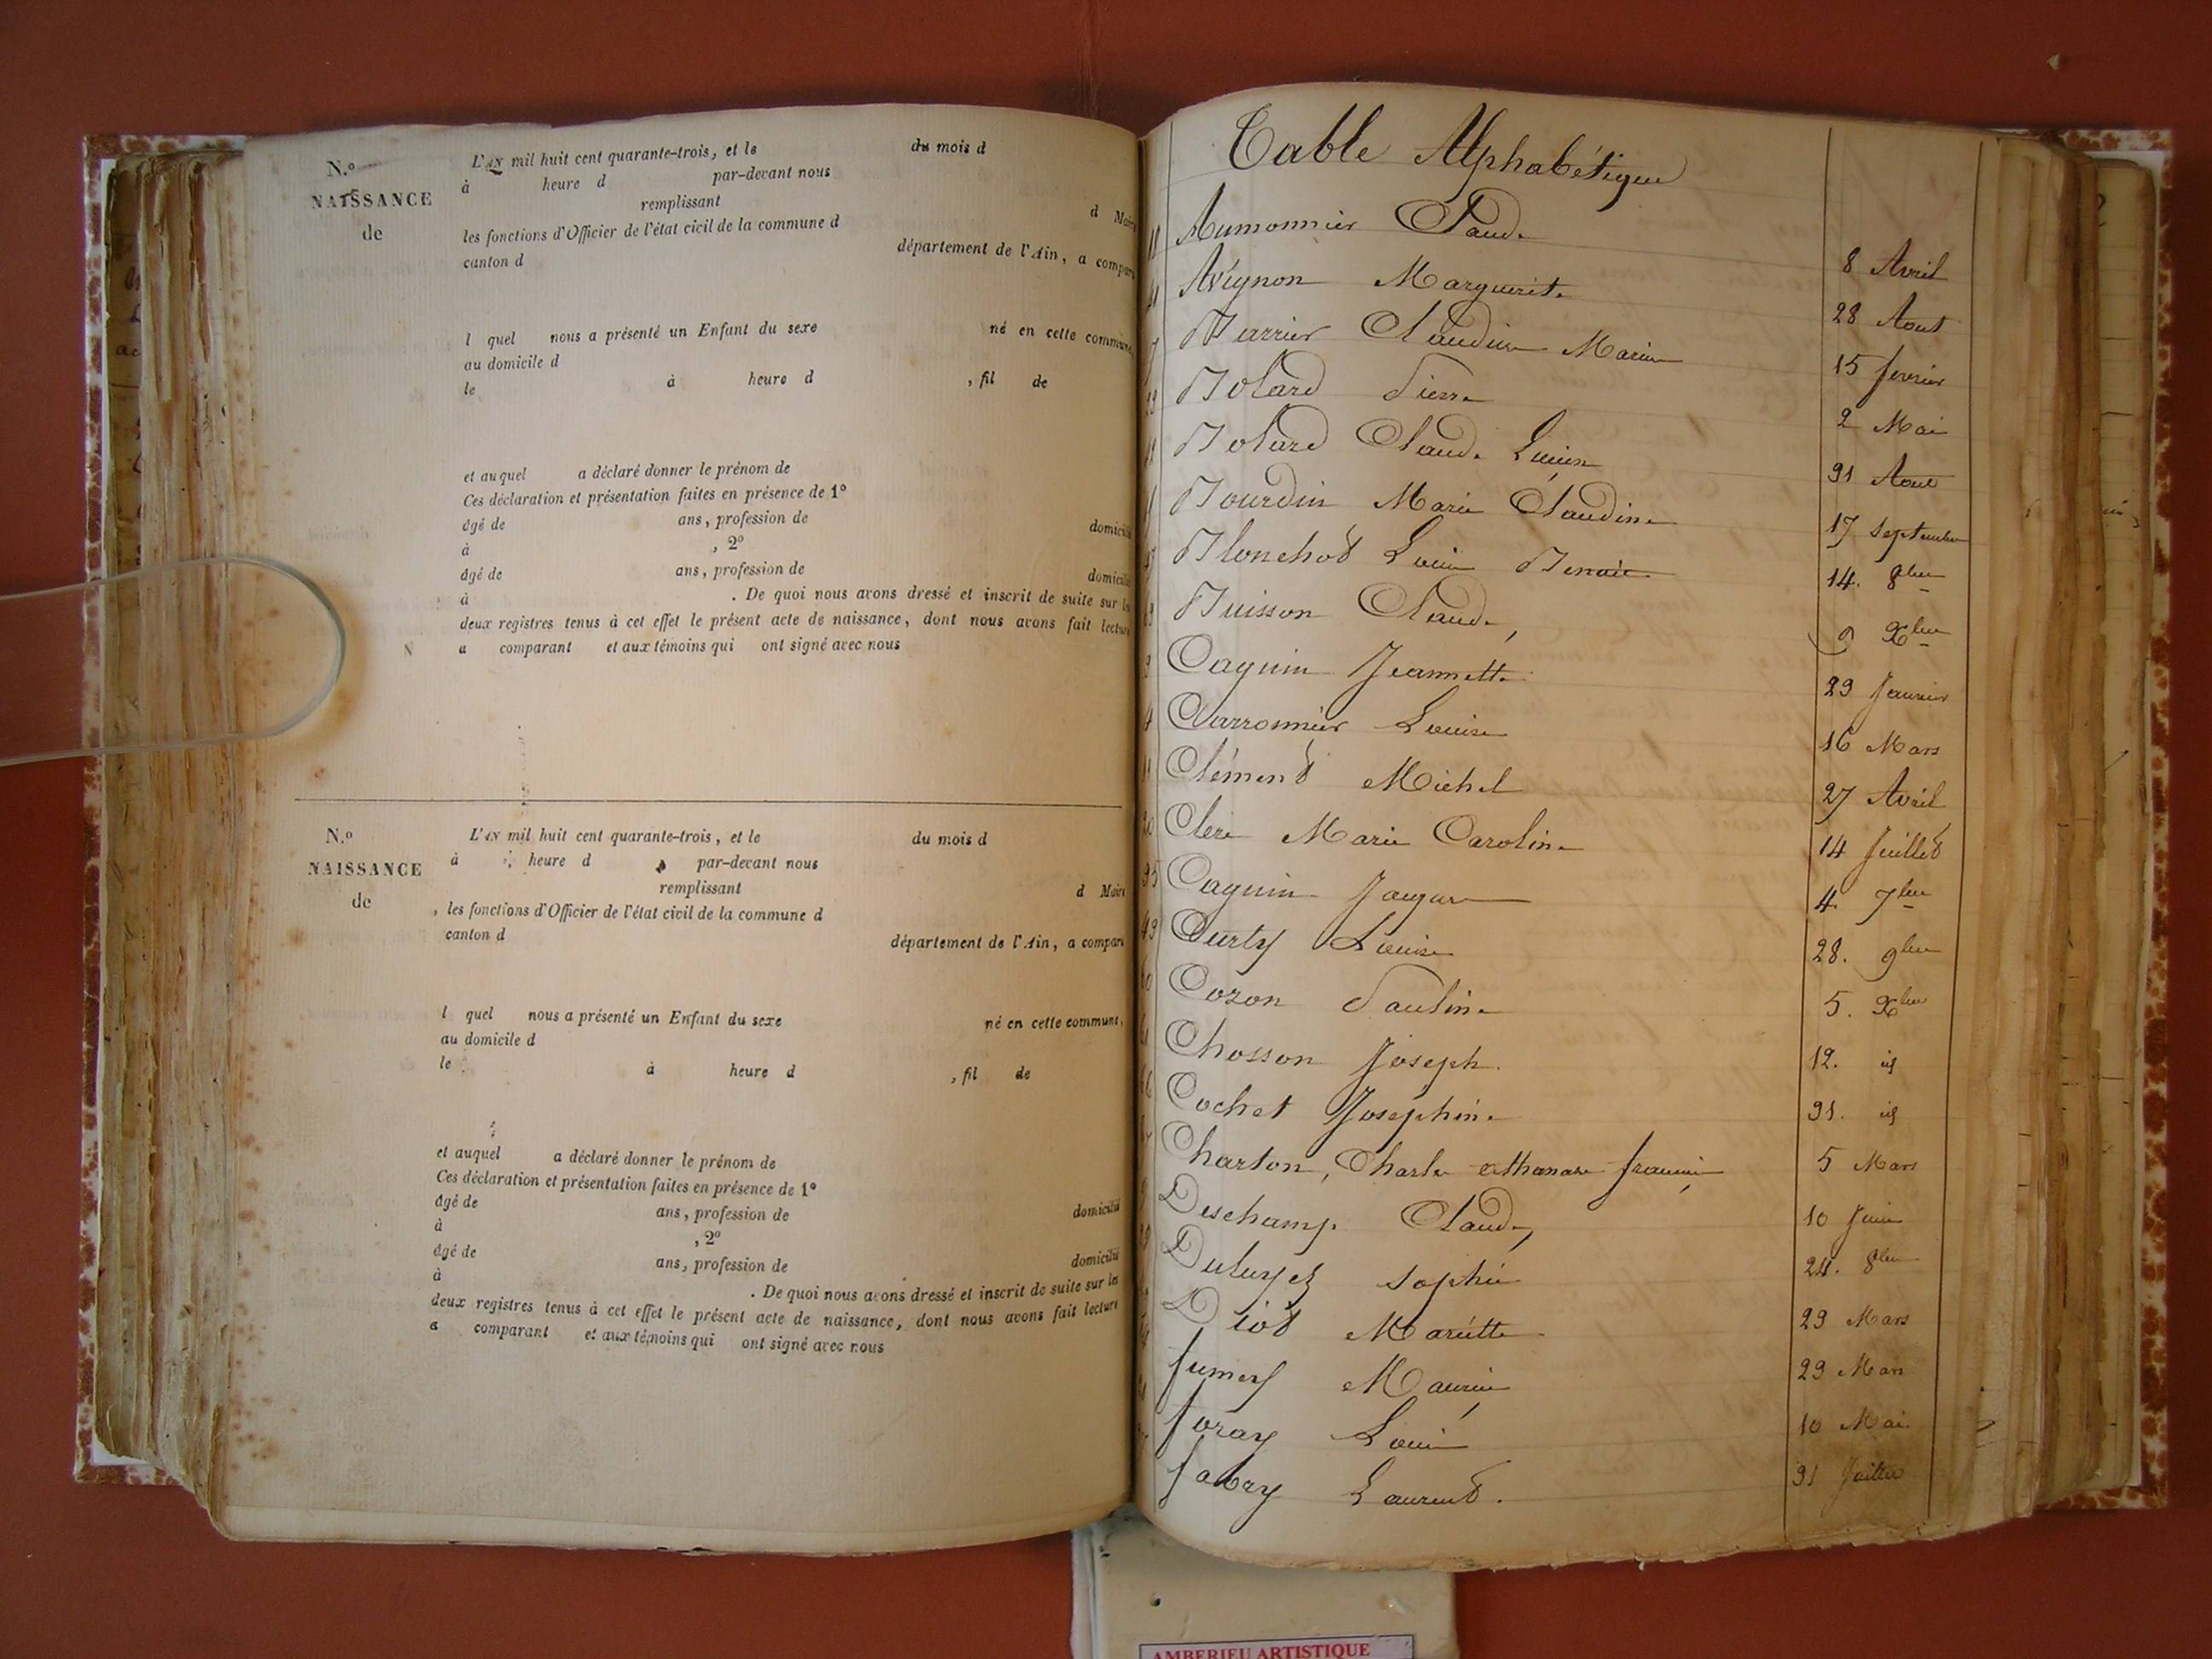 N.o
NAISSANCE
de
L'AN mil huit cent quarante-trois, et le du mois d
à heure d par-devant nous
remplissant d Maire
les fonctions d'Officier de l'état civil de la commune d
canton d département de l'Ain, a compar
l quel nous a présenté un Enfant du sexe né en cette commune,
au domicile d
le à heure d , fil de
et auquel a déclaré donner le prénom de
Ces déclaration et présentation faites en présence de 1o
âgé de ans, profession de domicilié
à , 2o
âgé de ans, profession de domicilié
à . De quoi nous avons dressé et inscrit de suite sur les
deux registres tenus à cet effet le présent acte de naissance, dont nous avons fait lecture
a comparant et aux témoins qui ont signé avec nous
N.o
NAISSANCE
de
L'AN mil huit cent quarante-trois, et le du mois d
à heure d par-devant nous
remplissant d Maire
les fonctions d'Officier de l'état civil de la commune d
canton d département de l'Ain, a compar
l quel nous a présenté un Enfant du sexe né en cette commune,
au domicile d
le à heure d , fil de
et auquel a déclaré donner le prénom de
Ces déclaration et présentation faites en présence de 1o
âgé de ans, profession de domicilié
à , 2o
âgé de ans, profession de domicilié
à . De quoi nous avons dressé et inscrit de suite sur les
deux registres tenus à cet effet le présent acte de naissance, dont nous avons fait lecture
a comparant et aux témoins qui ont signé avec nous
Table Alphabétique
Aumonnier Claude 8 Avril
Avignon Marguerite 28 Aout
Barrier Claudine Marie 15 fevrier
Bolard Pierre 2 Mai
Bolard Claude Lucien 31 Aout
Bourdin Marie Claudine 17 Septembre
Blonchot Louis 14. 8bre
Buisson Claude 9 Xbre
Caguin Jeannette 23 Janvier
Carronnier Louise 16 Mars
Clément Michel 27 Avril
Clerc Marie Caroline 14 Juillet
35 Caguin Jacques 4. 7bre
49 Curty Louise 28. 9bre
Cozon Pauline 5. Xbre
Chosson Joseph. 12. id
Cochet Josephine 31. id
Charton, Charles Athanase françois 5 Mars
Deschamp Claude 10 Juin
Sophie 24. 8bre
Diot Mariette 29 Mars
fumex Maurice 29 Mars
foray Louis 10 Mai
fabry Laurent. 31 Juillet
AMBERIEU ARTISTIQUE